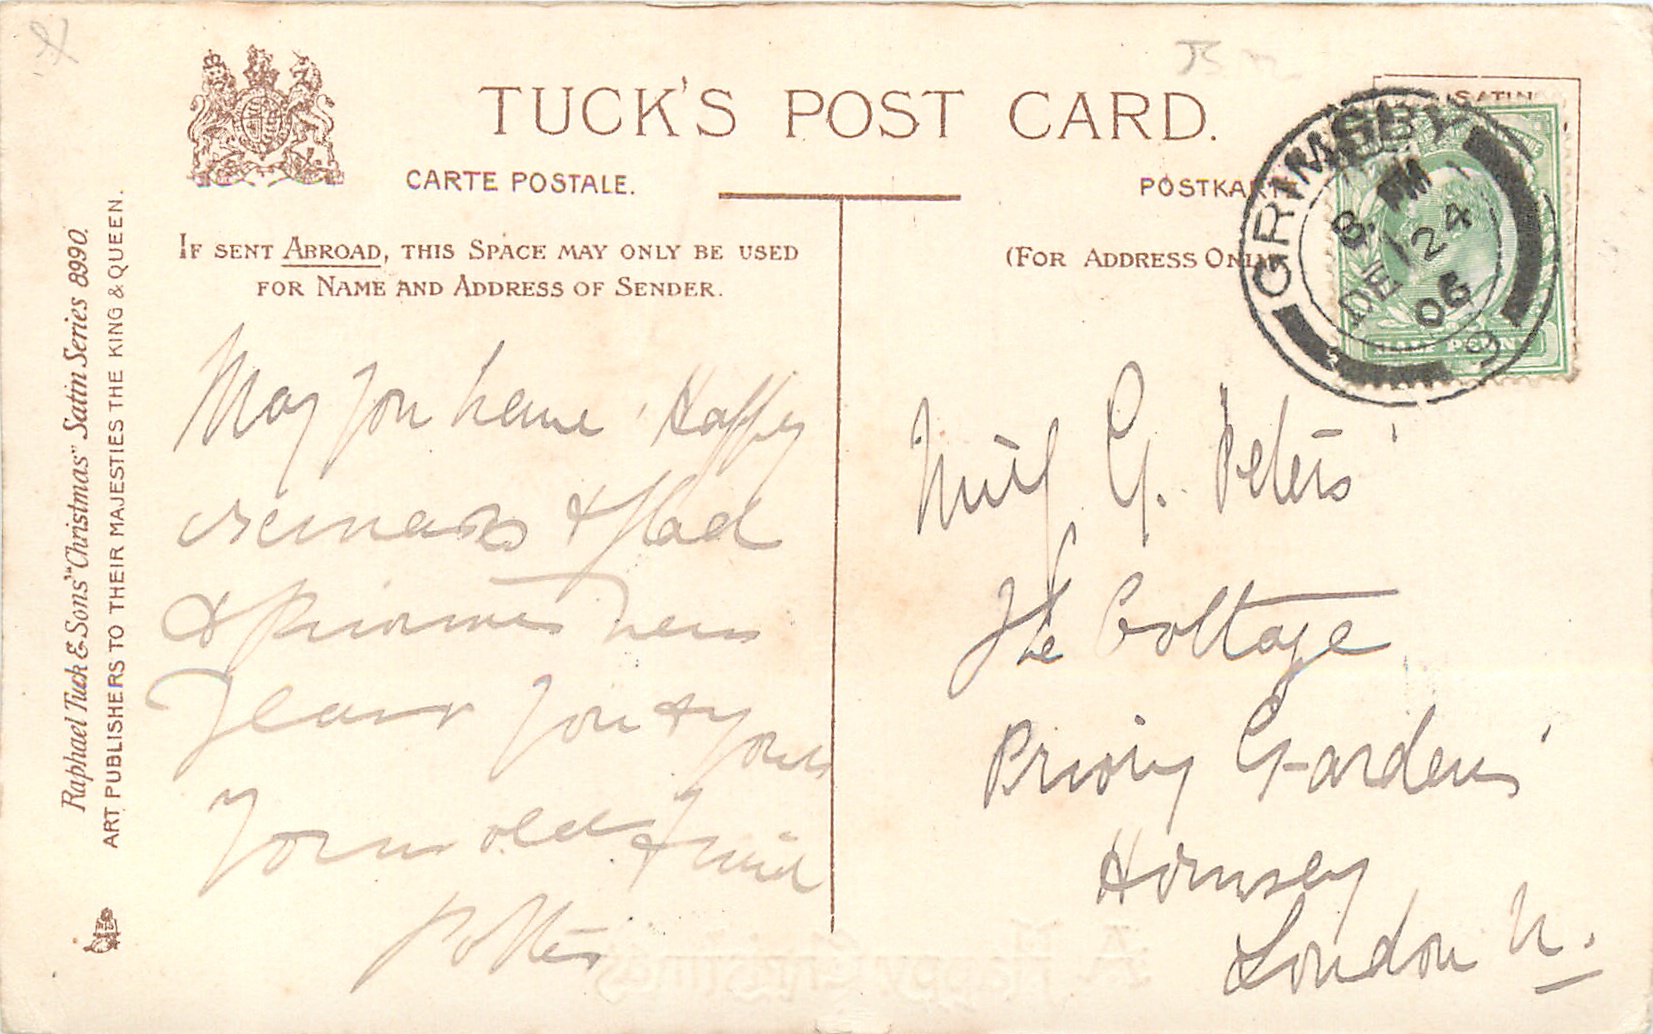 TUCK'S POST CARD.
CARTE POSTALE.
POSTKAR
IF SENT ABROAD, THIS SPACE MAY ONLY BE USED
FOR NAME AND ADDRESS OF SENDER.
(FOR ADDRESS ONLY
SATIN
GRIMSBY
8 PM
DE 24
06
3
HALF PENNY
Raphael Tuck & Sons' "Christmas" Satin Series 8990.
ART PUBLISHERS TO THEIR MAJESTIES THE KING & QUEEN.
May you have Happy
& Glad
& New
Years you & yours
Your old friend
Potter
G. Peters
The Cottage
Priory Gardens
Hornsey
London N.
A Happy Christmas